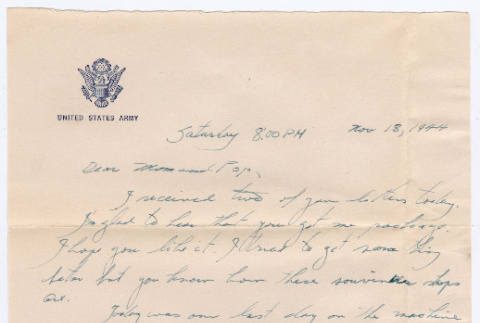 UNITED STATES ARMY
Saturday 8:00 PM Nov 18, 1944
Dear Mom and Pop,
I received two of your letters today.
I'm glad to hear that you got my package.
I hope you like it. I tried to get some thing
better but you know how these souvenir shops
are.
Today was our last day on the machine